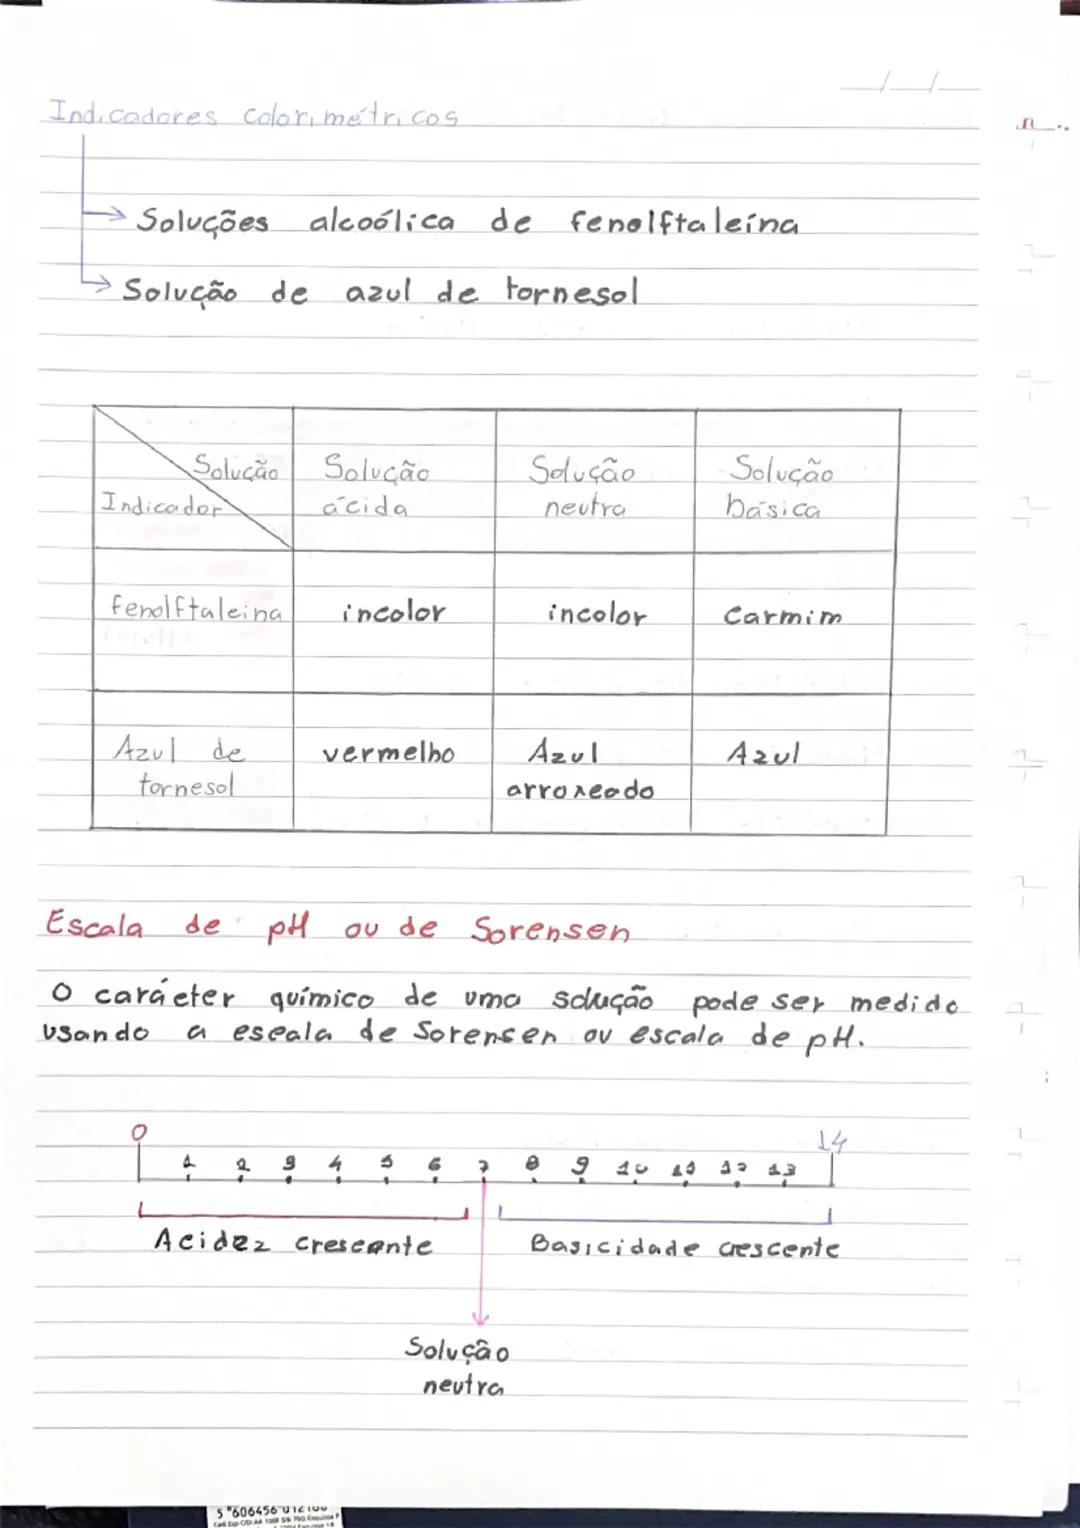 Indicadores colorimétricos
Soluções alcoólica de fenolftaleína
Solução de azul de tornesol
Solução
Indicador
Solução ácida
Solução neutra
Solução básica
fenolftaleina
incolor
incolor
Carmim
Azul de tornesol
vermelho
Azul arroxeado
Azul
Escala de pH ou de Sorensen
O carácter químico de uma solução pode ser medido
usando a escala de Sorensen ou escala de pH.
0 1 2 3 4 5 6 7 8 9 10 11 12 13 14
Acidez crescente
Basicidade crescente
Solução
neutra
5 606456 012100